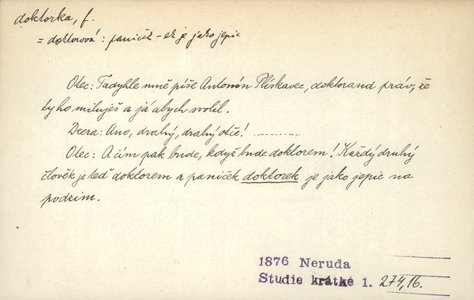 doktorka, f.
= doktorová: paniček - ek je jako jepic
Otec: Tadyhle mně píše Antonín Plískavec, doktorand práv, že
ty ho miluješ a já abych svolil.
Dcera: Ano, drahý, drahý otče! ..........
Otec: A čím pak bude, když bude doktorem! Každý druhý
člověk je teď doktorem a paniček doktorek je jako jepic na
podzim.
1876 Neruda
Studie krátké 1. 274,16.